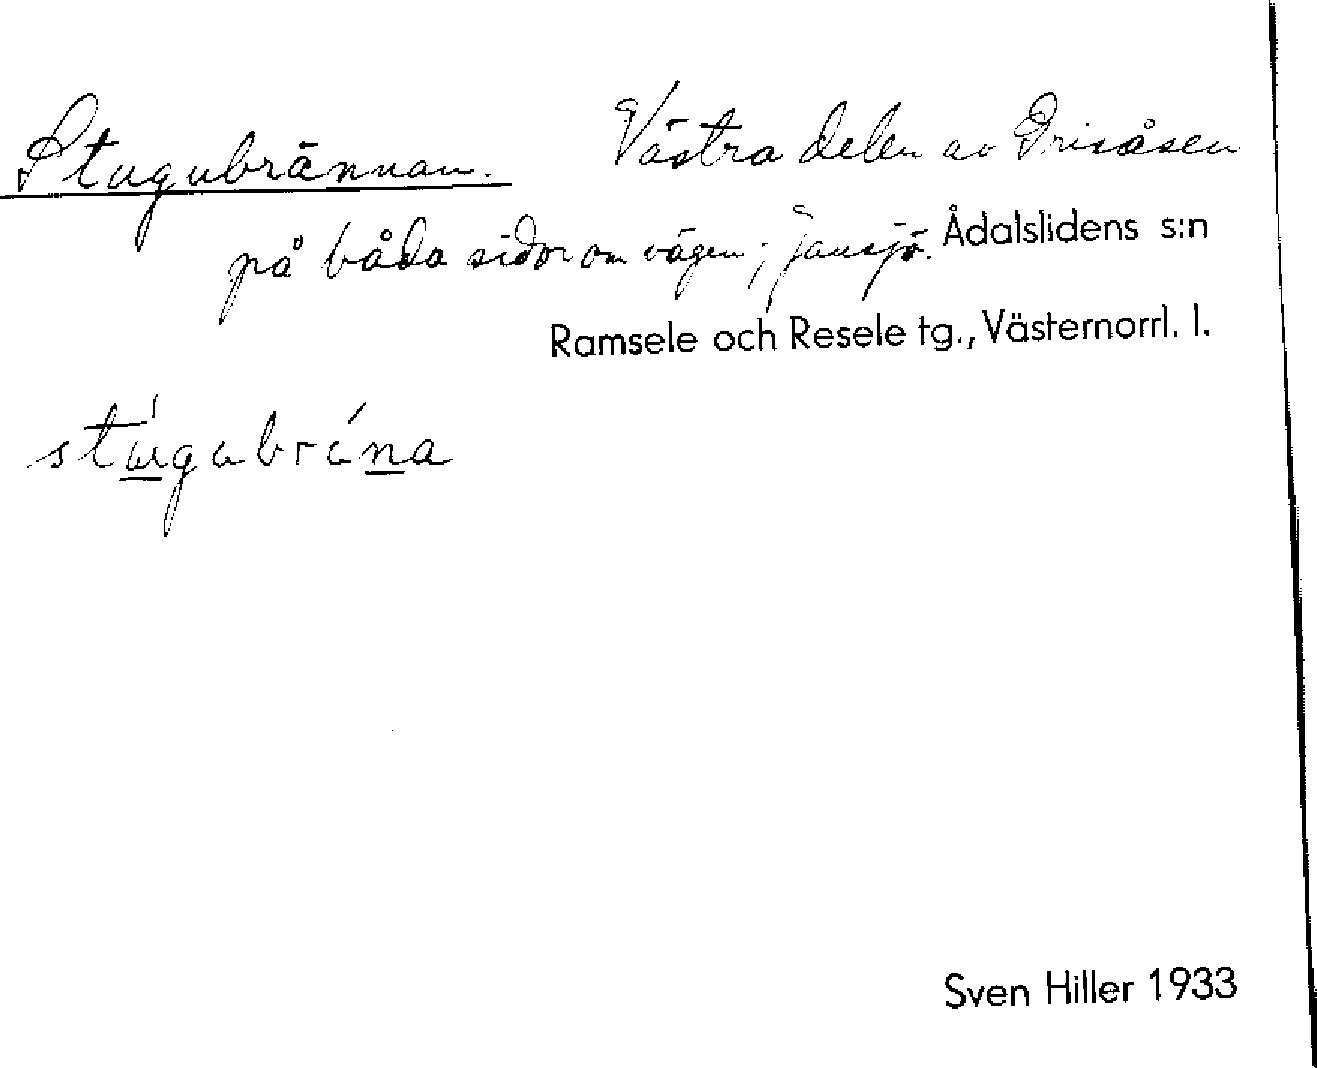 Stugubrännan. Västra delen av Drisåsen
på båda sidor om vägen; Jansjö. Ådalslidens s:n
Ramsele och Resele tg., Västernorrl. l.
stugubräna
Sven Hiller 1933